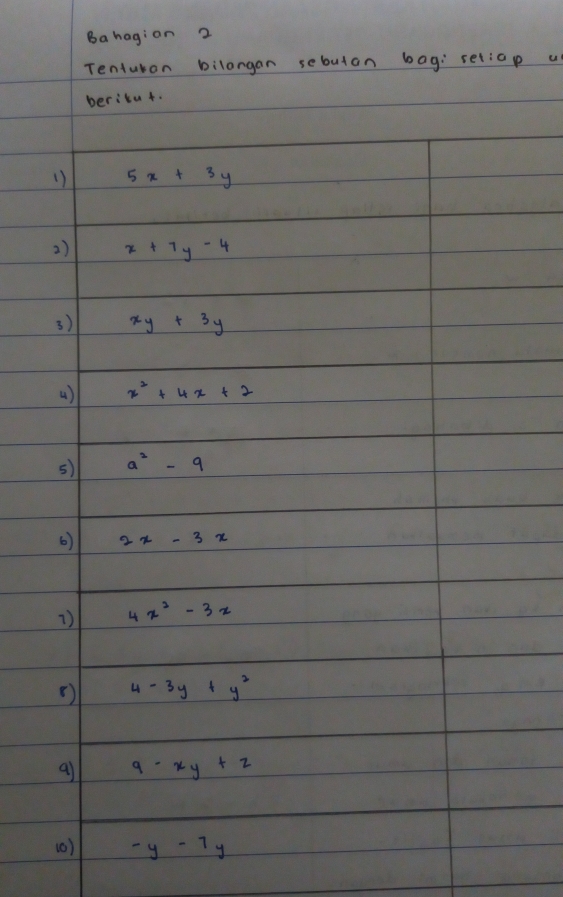 Bahagian 2
Tentukan bilangan sebutan bagi setiap
berikut.
1) 5x + 3y
2) x + 7y - 4
3) xy + 3y
4) x² + 4x + 2
5) a² - 9
6) 2x - 3x
7) 4x² - 3x
8) 4 - 3y + y²
9) 9 - xy + z
10) -y - 7y